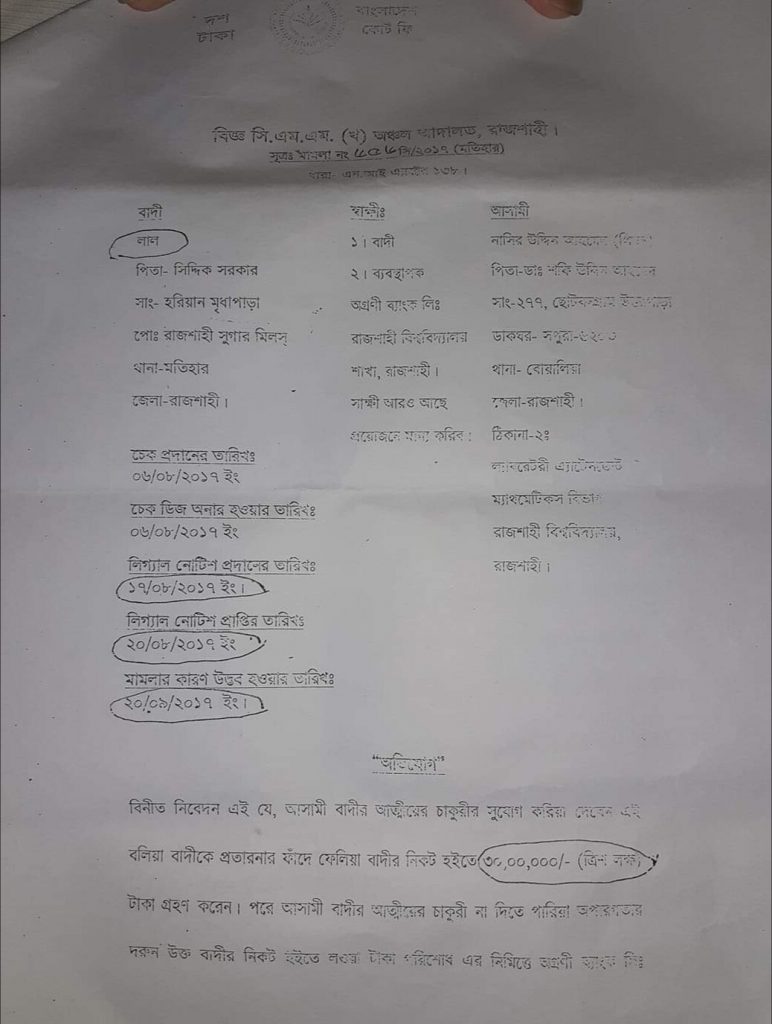 দশ
টাকা
বাংলাদেশ
কোর্ট ফি
বিজ্ঞ সি.এম.এম. (খ) অঞ্চল আদালত, রাজশাহী।
সূত্রঃ মামলা নং সি/২০১৭ (মতিহার)
ধারা- এন.আই এ্যাক্টের ১৩৮।
বাদী
লাল
পিতা- সিদ্দিক সরকার
সাং- হরিয়ান মৃধাপাড়া
পোঃ রাজশাহী সুগার মিলস্
থানা-মতিহার
জেলা-রাজশাহী।
চেক প্রদানের তারিখঃ
০৬/০৮/২০১৭ ইং
চেক ডিজ অনার হওয়ার তারিখঃ
০৬/০৮/২০১৭ ইং
লিগ্যাল নোটিশ প্রদানের তারিখঃ
১৭/০৮/২০১৭ ইং।
লিগ্যাল নোটিশ প্রাপ্তির তারিখঃ
২০/০৮/২০১৭ ইং
মামলার কারণ উদ্ভব হওয়ার তারিখঃ
২০/০৯/২০১৭ ইং।
স্বাক্ষীঃ
১। বাদী
২। ব্যবস্থাপক
অগ্রণী ব্যাংক লিঃ
রাজশাহী বিশ্ববিদ্যালয়
শাখা, রাজশাহী।
সাক্ষী আরও আছে
প্রয়োজনে মান্য করিব।
আসামী
নাসির উদ্দিন আহমেদ
পিতা-ডাঃ শফি উদ্দিন আহমেদ
সাং-২৭৭,
ডাকঘর- সপুরা-৬২০৩
থানা- বোয়ালিয়া
জেলা-রাজশাহী।
ঠিকানা-২ঃ
ল্যাবরেটরী এ্যাটেনডেন্ট
ম্যাথমেটিকস বিভাগ
রাজশাহী বিশ্ববিদ্যালয়,
রাজশাহী।
“অভিযোগ”
বিনীত নিবেদন এই যে, আসামী বাদীর আত্মীয়ের চাকুরীর সুযোগ করিয়া দেবেন এই
বলিয়া বাদীকে প্রতারনার ফাঁদে ফেলিয়া বাদীর নিকট হইতে ৩০,০০,০০০/- (ত্রিশ লক্ষ)
টাকা গ্রহণ করেন। পরে আসামী বাদীর আত্মীয়ের চাকুরী না দিতে পারিয়া অপারগতার
দরুন উক্ত বাদীর নিকট হইতে লওয়া টাকা পরিশোধ এর নিমিত্তে অগ্রণী ব্যাংক লিঃ